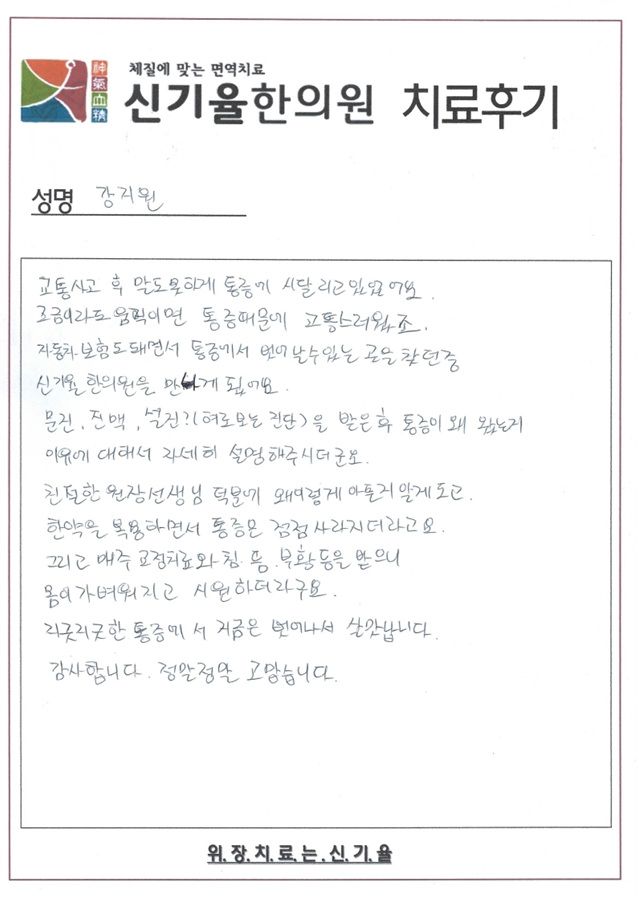 神氣血精
체질에 맞는 면역치료
신기율한의원 치료후기
성명 강지원
교통사고 후 말도못하게 통증에 시달리고있었어요.
조금이라도 움직이면 통증때문에 고통스러웠죠.
자동차보험도돼면서 통증에서 벗어날수있는 곳을 찾던중
신기율한의원을 만나게 됬어요.
문진, 진맥, 설진?(혀로보는 진단)을 받은후 통증이 왜 왔는지
이유에 대해서 자세히 설명해주시더군요.
친절한 원장선생님 덕분에 왜이렇게 아픈지 알게되고.
한약을 복용하면서 통증은 점점사라지더라고요.
그리고 매주 교정치료와 침. 뜸. 부황등을 받으니
몸이가벼워지고 시원하더라구요.
지긋지긋한 통증에서 지금은 벗어나서 살맛납니다.
감사합니다. 정말정말 고맙습니다.
위.장.치.료.는.신.기.율